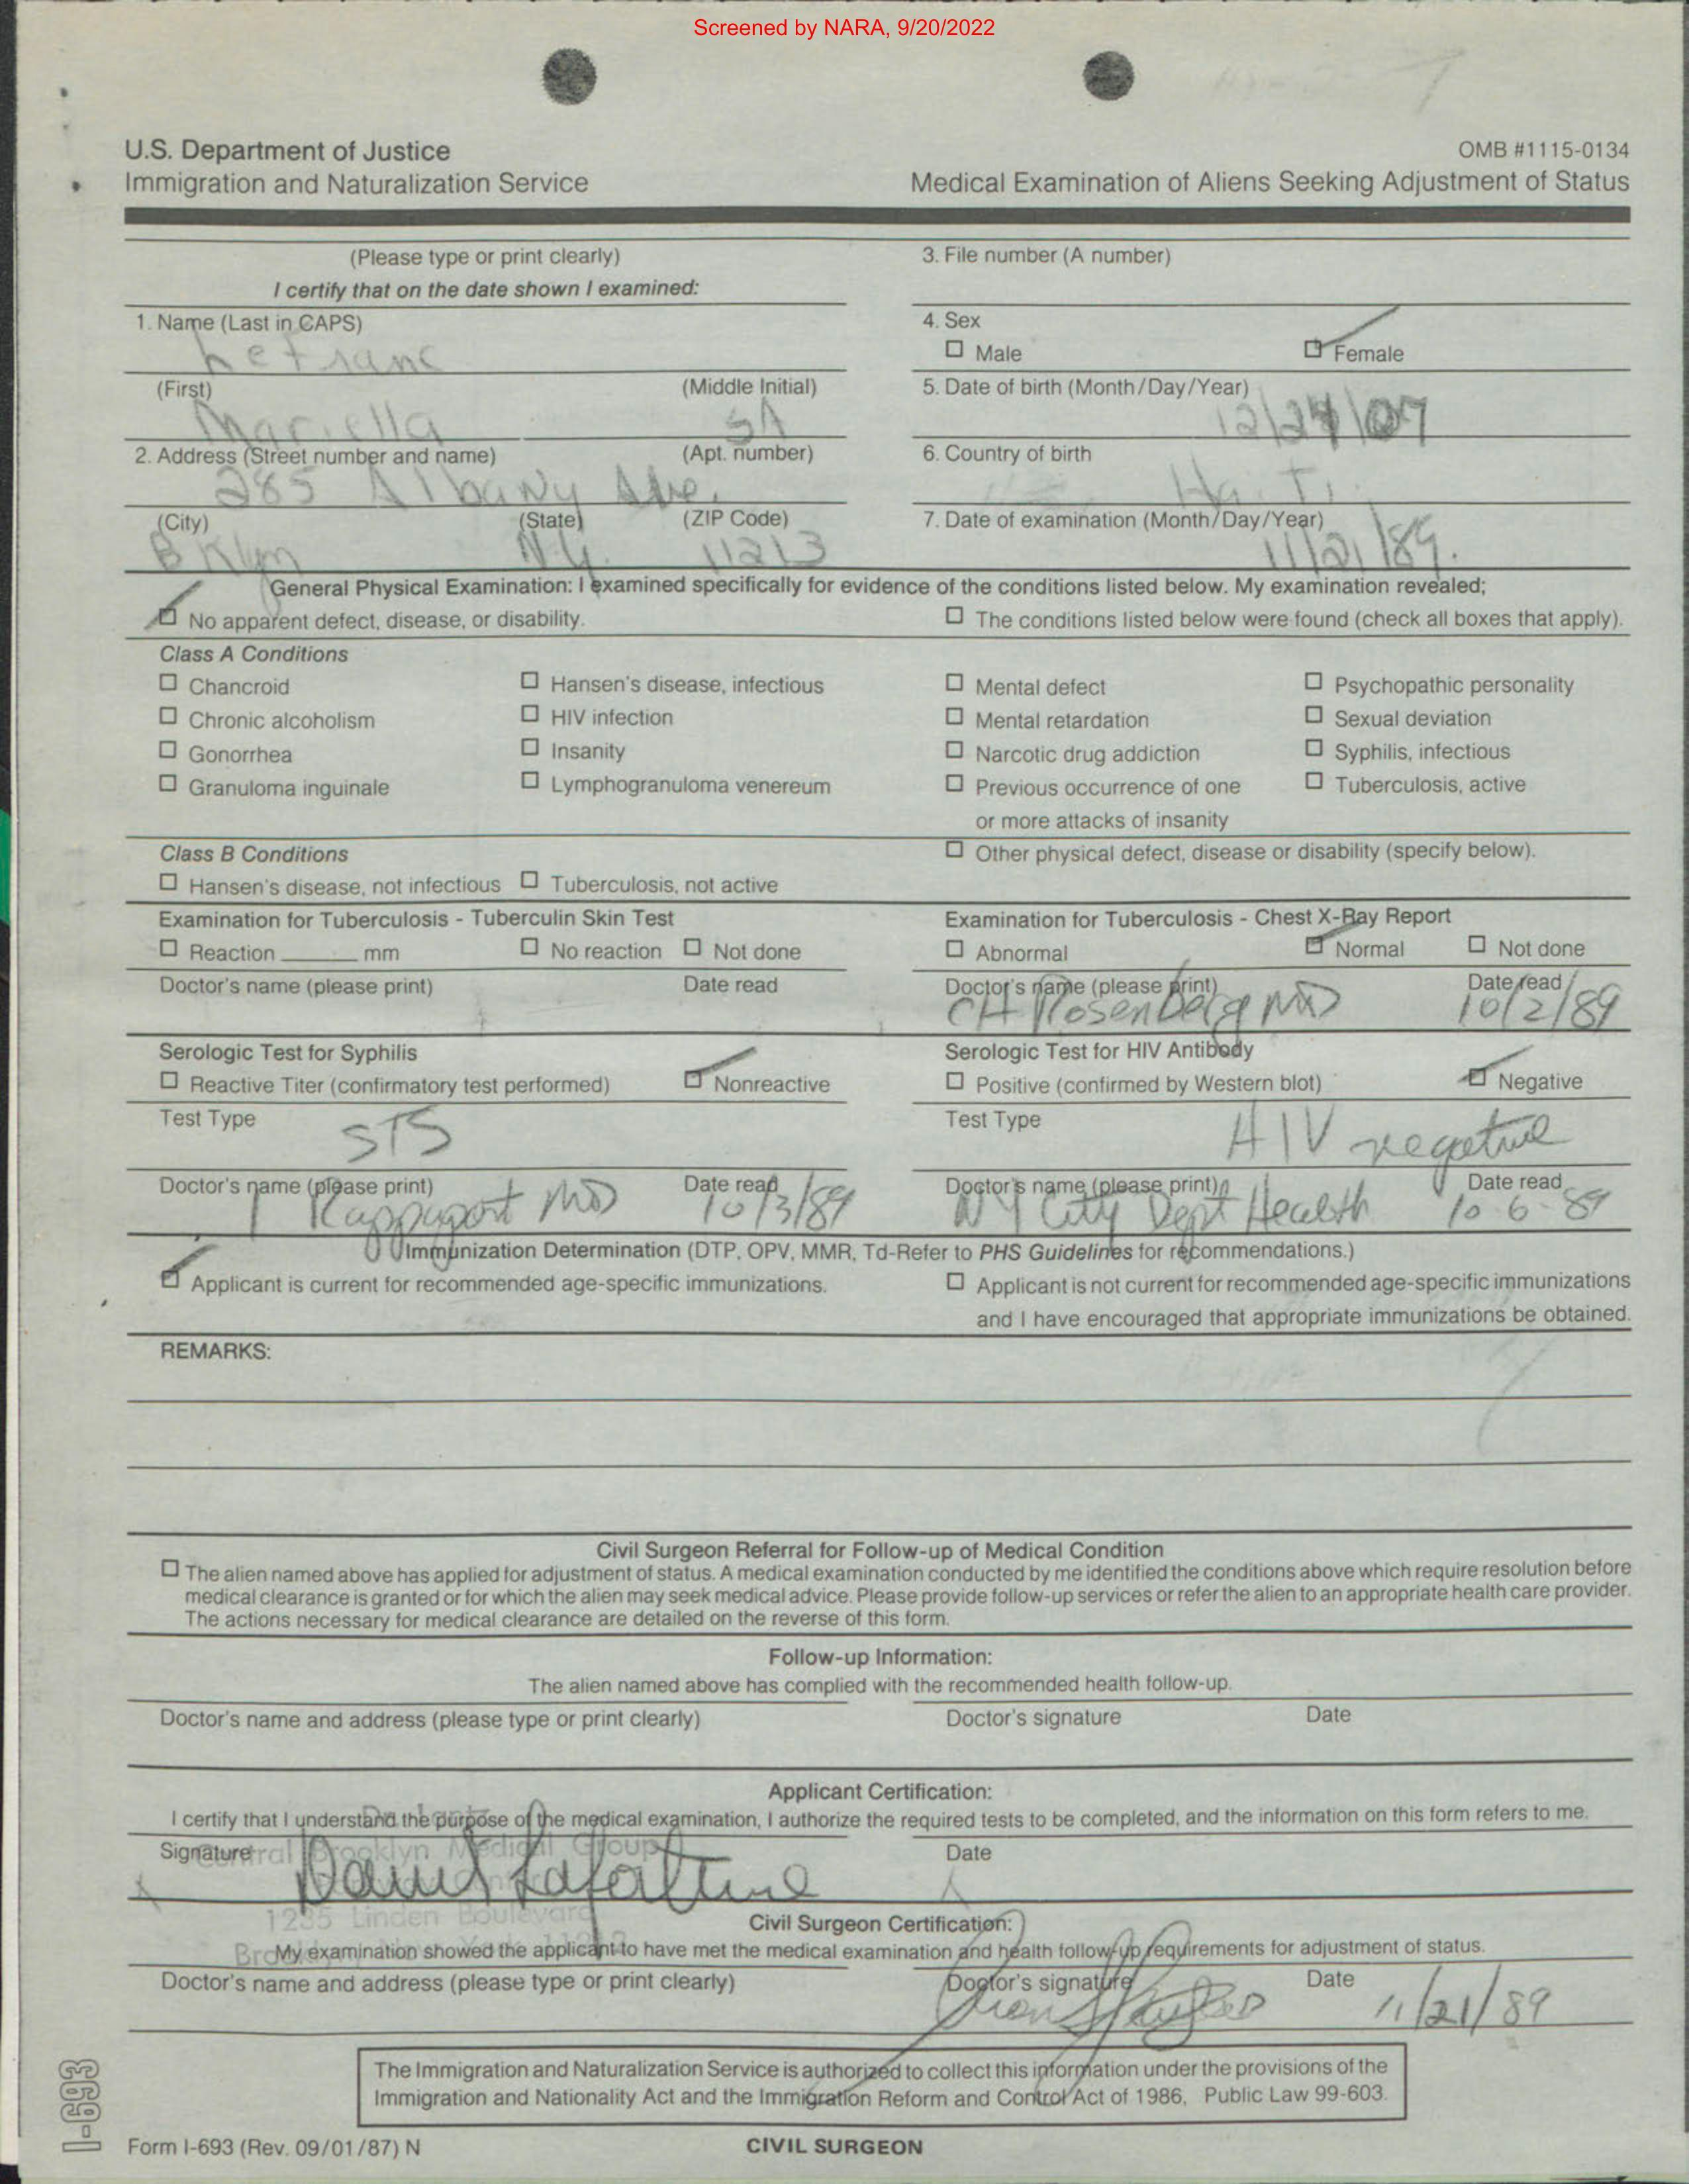 Screened by NARA, 9/20/2022
U.S. Department of Justice
Immigration and Naturalization Service
OMB #1115-0134
Medical Examination of Aliens Seeking Adjustment of Status
(Please type or print clearly)
I certify that on the date shown I examined:
3. File number (A number)
1. Name (Last in CAPS)
Lefranc
4. Sex
☐ Male ☑ Female
(First) (Middle Initial)
Mariella
5. Date of birth (Month/Day/Year)
2. Address (Street number and name) (Apt. number)
285 Albany Ave. 5A
6. Country of birth
Haiti
(City) (State) (ZIP Code)
Bklyn N.Y. 11213
7. Date of examination (Month/Day/Year)
11/21/89.
General Physical Examination: I examined specifically for evidence of the conditions listed below. My examination revealed;
☑ No apparent defect, disease, or disability. ☐ The conditions listed below were found (check all boxes that apply).
Class A Conditions
☐ Chancroid ☐ Hansen's disease, infectious ☐ Mental defect ☐ Psychopathic personality
☐ Chronic alcoholism ☐ HIV infection ☐ Mental retardation ☐ Sexual deviation
☐ Gonorrhea ☐ Insanity ☐ Narcotic drug addiction ☐ Syphilis, infectious
☐ Granuloma inguinale ☐ Lymphogranuloma venereum ☐ Previous occurrence of one ☐ Tuberculosis, active
or more attacks of insanity
Class B Conditions ☐ Other physical defect, disease or disability (specify below).
☐ Hansen's disease, not infectious ☐ Tuberculosis, not active
Examination for Tuberculosis - Tuberculin Skin Test
☐ Reaction ______ mm ☐ No reaction ☐ Not done
Doctor's name (please print) Date read
Examination for Tuberculosis - Chest X-Ray Report
☐ Abnormal ☑ Normal ☐ Not done
Doctor's name (please print) Date read
CH Rosenberg MD 10/2/89
Serologic Test for Syphilis
☐ Reactive Titer (confirmatory test performed) ☑ Nonreactive
Test Type
STS
Doctor's name (please print) Date read
Rappaport MD 10/3/89
Serologic Test for HIV Antibody
☐ Positive (confirmed by Western blot) ☑ Negative
Test Type
HIV negative
Doctor's name (please print) Date read
NY City Dept Health 10-6-89
Immunization Determination (DTP, OPV, MMR, Td-Refer to PHS Guidelines for recommendations.)
☑ Applicant is current for recommended age-specific immunizations. ☐ Applicant is not current for recommended age-specific immunizations
and I have encouraged that appropriate immunizations be obtained.
REMARKS:
Civil Surgeon Referral for Follow-up of Medical Condition
☐ The alien named above has applied for adjustment of status. A medical examination conducted by me identified the conditions above which require resolution before
medical clearance is granted or for which the alien may seek medical advice. Please provide follow-up services or refer the alien to an appropriate health care provider.
The actions necessary for medical clearance are detailed on the reverse of this form.
Follow-up Information:
The alien named above has complied with the recommended health follow-up.
Doctor's name and address (please type or print clearly) Doctor's signature Date
Applicant Certification:
I certify that I understand the purpose of the medical examination, I authorize the required tests to be completed, and the information on this form refers to me.
Signature Date
Central Brooklyn Medical Group
1235 Linden Boulevard
Civil Surgeon Certification:
My examination showed the applicant to have met the medical examination and health follow-up requirements for adjustment of status.
Doctor's name and address (please type or print clearly) Doctor's signature Date
11/21/89
The Immigration and Naturalization Service is authorized to collect this information under the provisions of the
Immigration and Nationality Act and the Immigration Reform and Control Act of 1986, Public Law 99-603.
I-693
Form I-693 (Rev. 09/01/87) N
CIVIL SURGEON